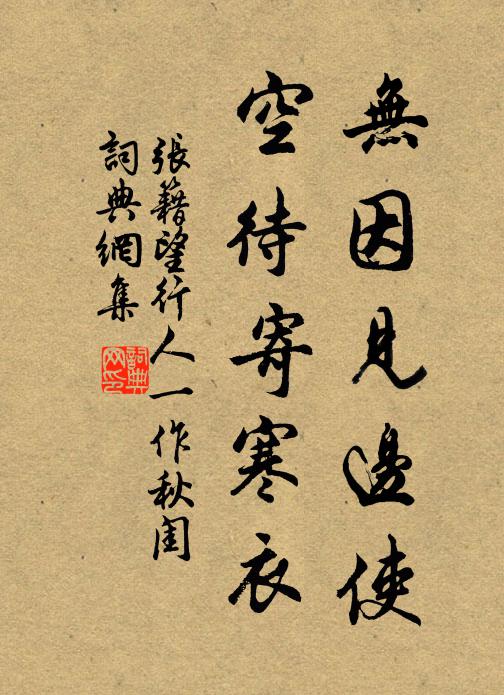 無因見邊使
空待寄寒衣
張籍望行人一作秋閨
詞典網集
詞典
网印